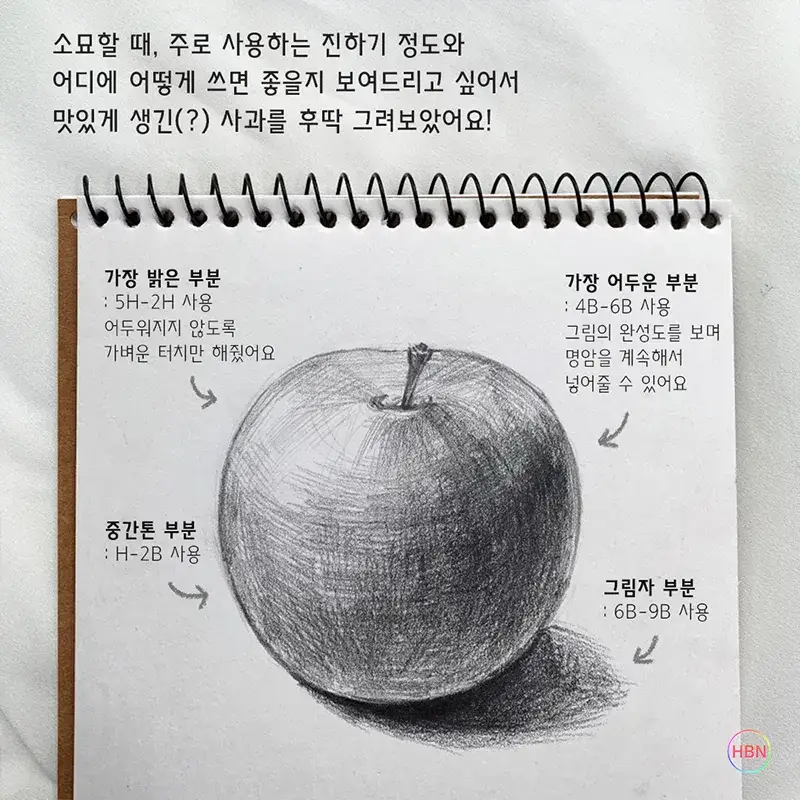 소묘할 때, 주로 사용하는 진하기 정도와
어디에 어떻게 쓰면 좋을지 보여드리고 싶어서
맛있게 생긴(?) 사과를 후딱 그려보았어요!
가장 밝은 부분
: 5H-2H 사용
어두워지지 않도록
가벼운 터치만 해줬어요
가장 어두운 부분
: 4B-6B 사용
그림의 완성도를 보며
명암을 계속해서
넣어줄 수 있어요
중간톤 부분
: H-2B 사용
그림자 부분
: 6B-9B 사용
HBN